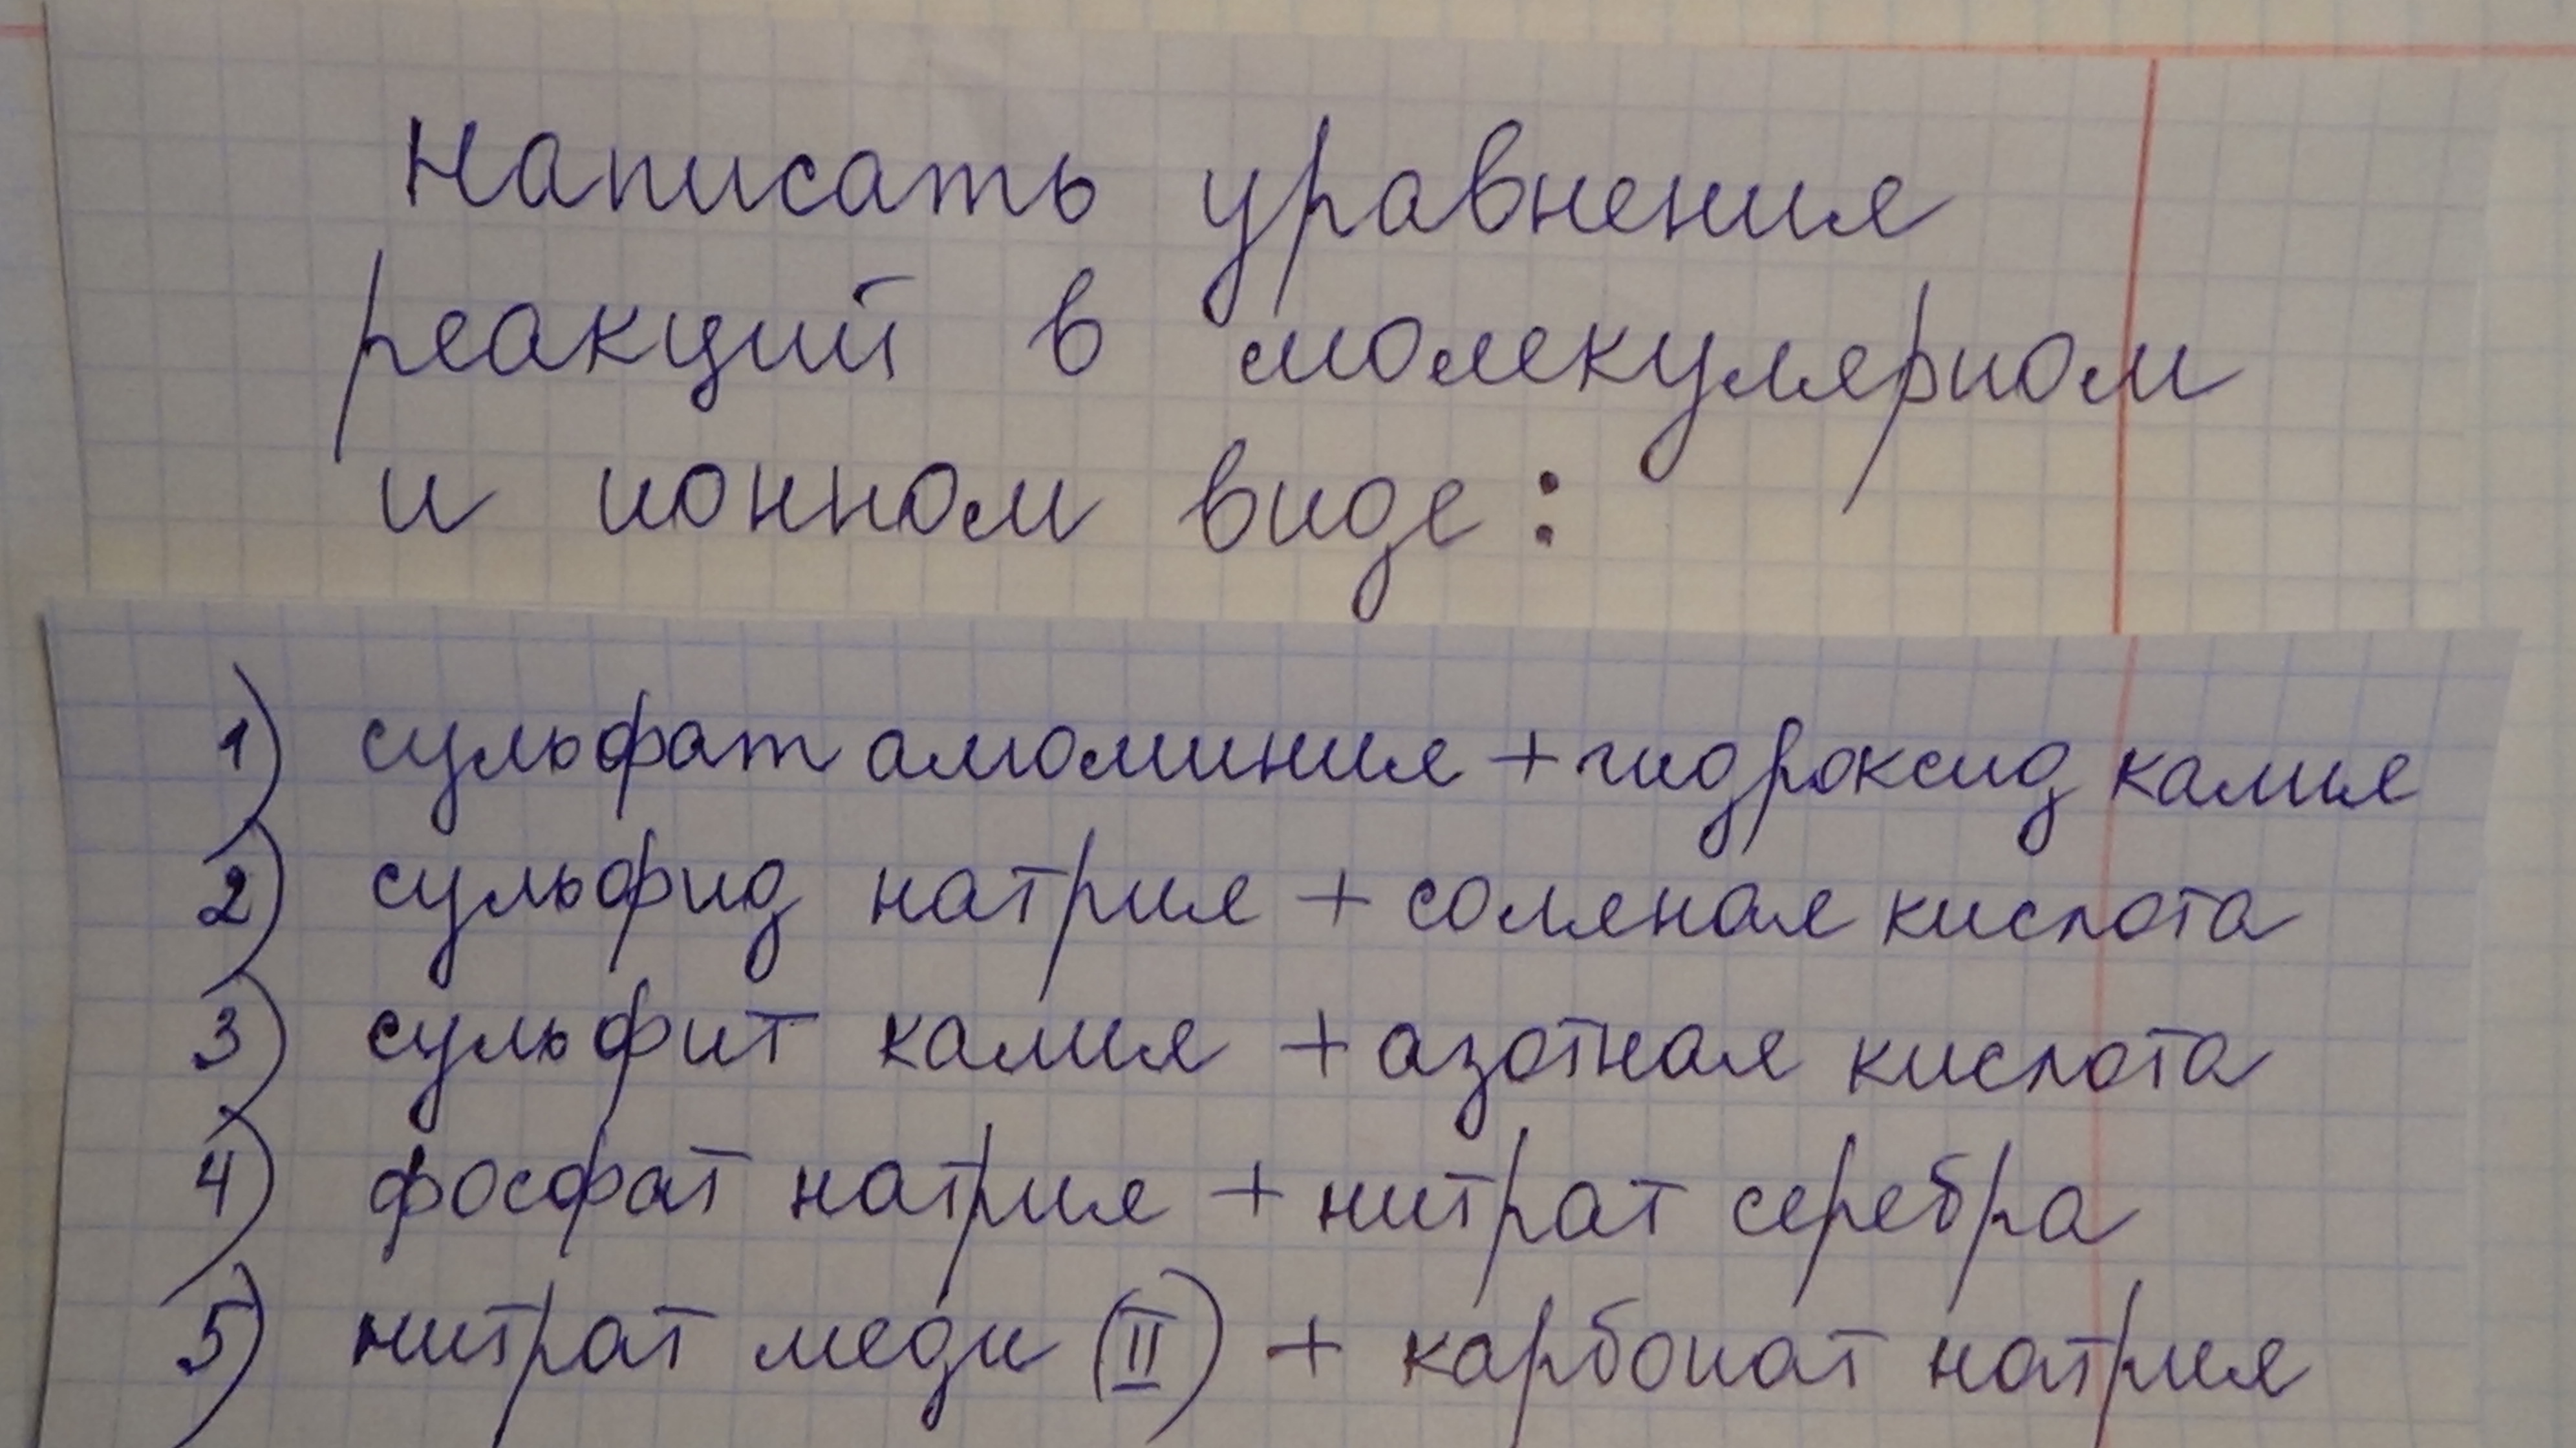 Написать уравнения
реакций в молекулярном
и ионном виде:
1) сульфат алюминия + гидроксид калия
2) сульфид натрия + соляная кислота
3) сульфит калия + азотная кислота
4) фосфат натрия + нитрат серебра
5) нитрат меди (II) + карбонат натрия